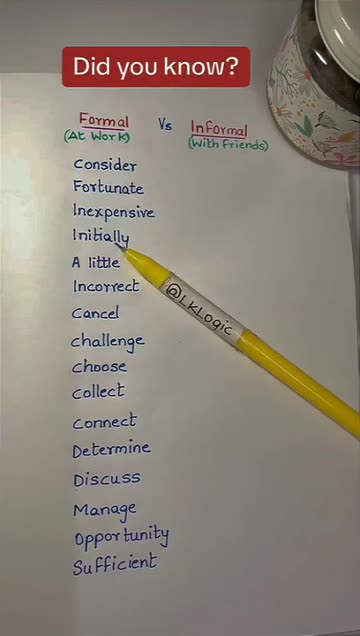 Did you know?
Formal Vs Informal
(At Work) (With Friends)
Consider
Fortunate
Inexpensive
Initially
A little
Incorrect
Cancel
Challenge
Choose
Collect
Connect
Determine
Discuss
Manage
Opportunity
Sufficient
@LKLogic